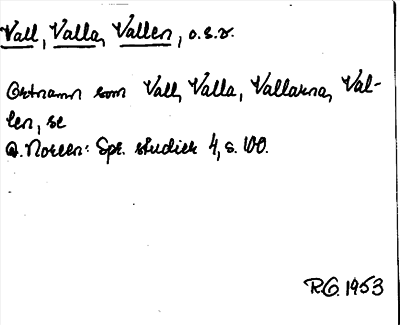 Vall, Valla, Vallen, o.s.v.
Ortnamn som Vall, Valla, Vallarna, Val-
len, se
A. Noreen: Spr. studier 4, s. 100.
R.G. 1953